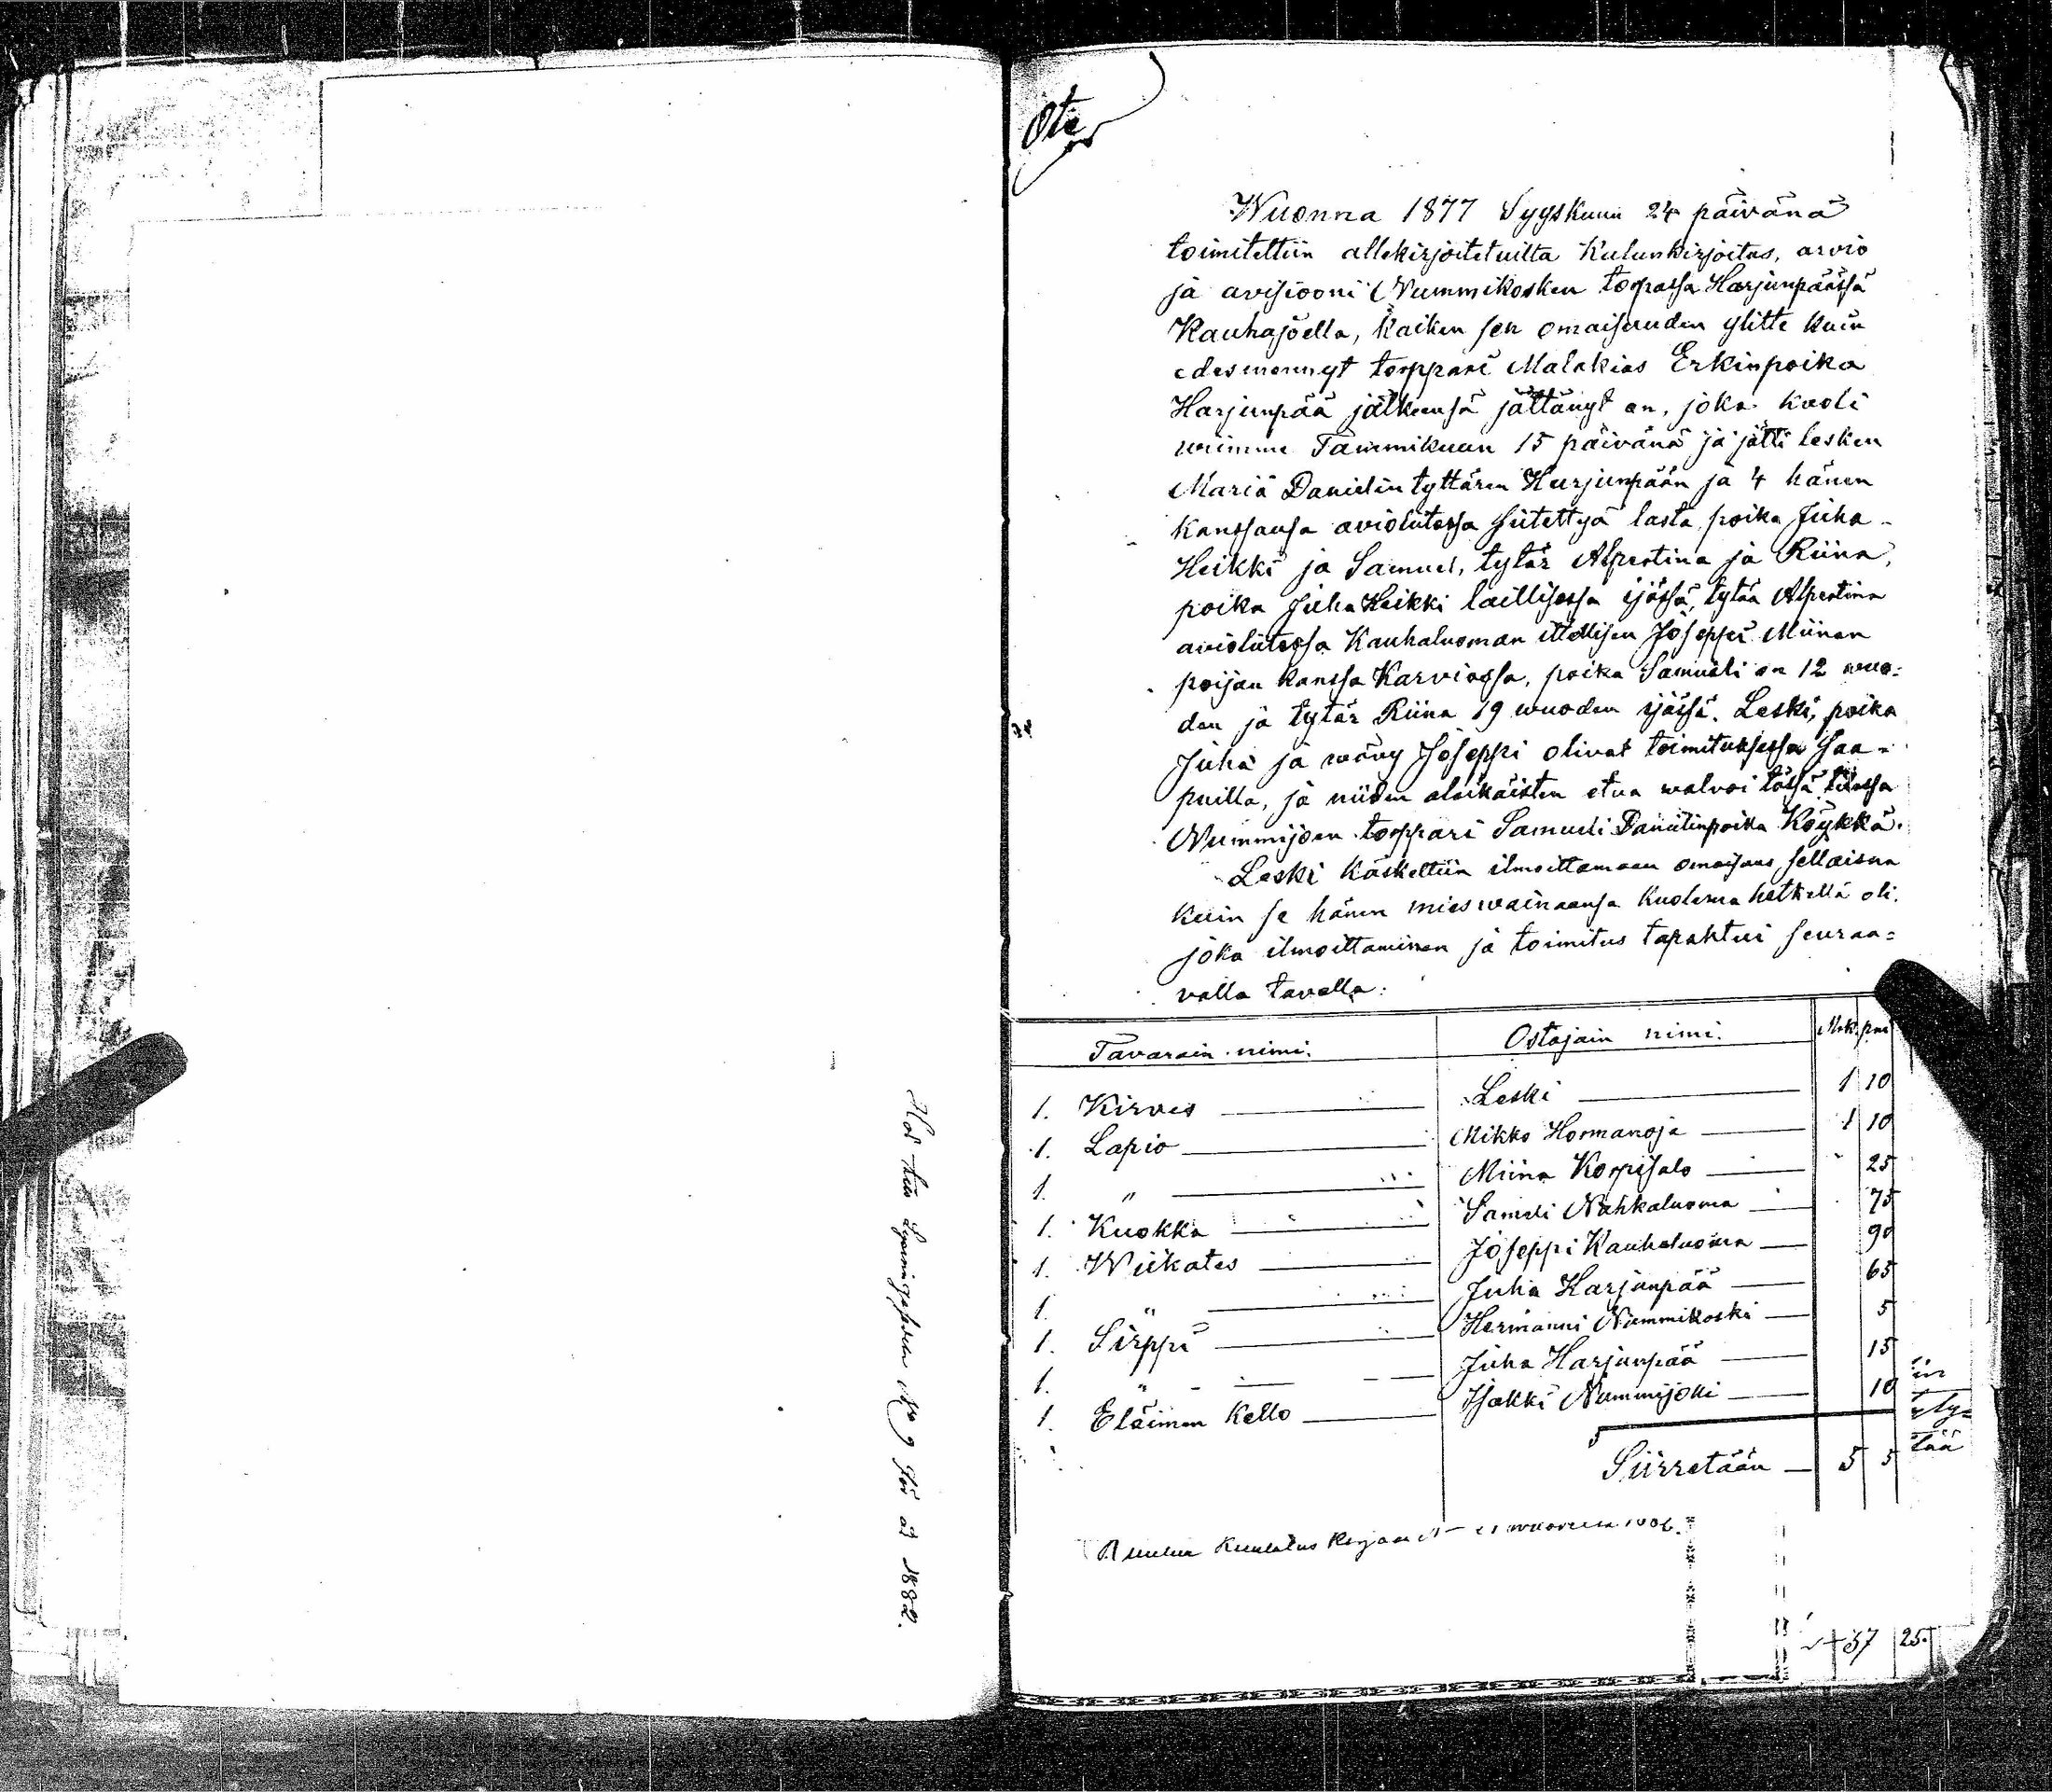 Ote
Wuonna 1877 Syyskuun 24 päivänä
toimitettiin allekirjoitetuilta Kalunkirjoitus, arvio
ja avisiooni Nummikosken torpassa Harjunpäässä
Kauhajoella, kaiken sen omaisuuden ylitte kuin
edesmennyt torppari Malakias Erkinpoika
Harjunpää jälkeensä jättänyt on, joka kuoli
wiimme Tammikuun 15 päivänä ja jätti lesken
Maria Danielin tyttären Harjunpään ja 4 hänen
kanssansa avioliitossa siitettyä lasta, poika Juha-
Heikki ja Samuel, tytär Alpertina ja Riina,
poika Juha Heikki laillisessa ijässä, tytär Alpertina
avioliitossa Kauhaluoman itsellisen Joseppi Miinan
poijan kanssa Karviassa, poika Samueli on 12 wuo-
den ja tytär Riina 19 wuoden ijässä. Leski, poika
Juha ja wävy Joseppi olivat toimituksessa saa-
puilla, ja niiden alaikäisten etua walvoi tässä tilassa
Nummijoen torppari Samueli Danielinpoika Köykkä.
Leski käskettiin ilmoittamaan omaisuus sellaisna
kuin se hänen mieswainaansa kuolema hetkellä oli.
joka ilmoittaminen ja toimitus tapahtui seuraa-
valla tavalla:
Tavarain nimi. Ostajain nimi. Mk. pni
1. Kirves — Leski — 1 10
1. Lapio — Mikko Hormanoja — 1 10
1. " — Miina Korpisalo — " 25
1. Kuokka — Samuli Nahkaluoma — 75
1. Wiikates — Joseppi Kauhaluoma — 90
1. " — Juha Harjunpää — 65
1. Sirppi — Hermanni Nummikoski — 5
1. " — Juha Harjunpää — 15
1. Eläimen kello — Isakki Nummijoki — 10
Siirretään — 5 5
in
tää
Kuulutus
37 25.
N:o 9 för år 1882.